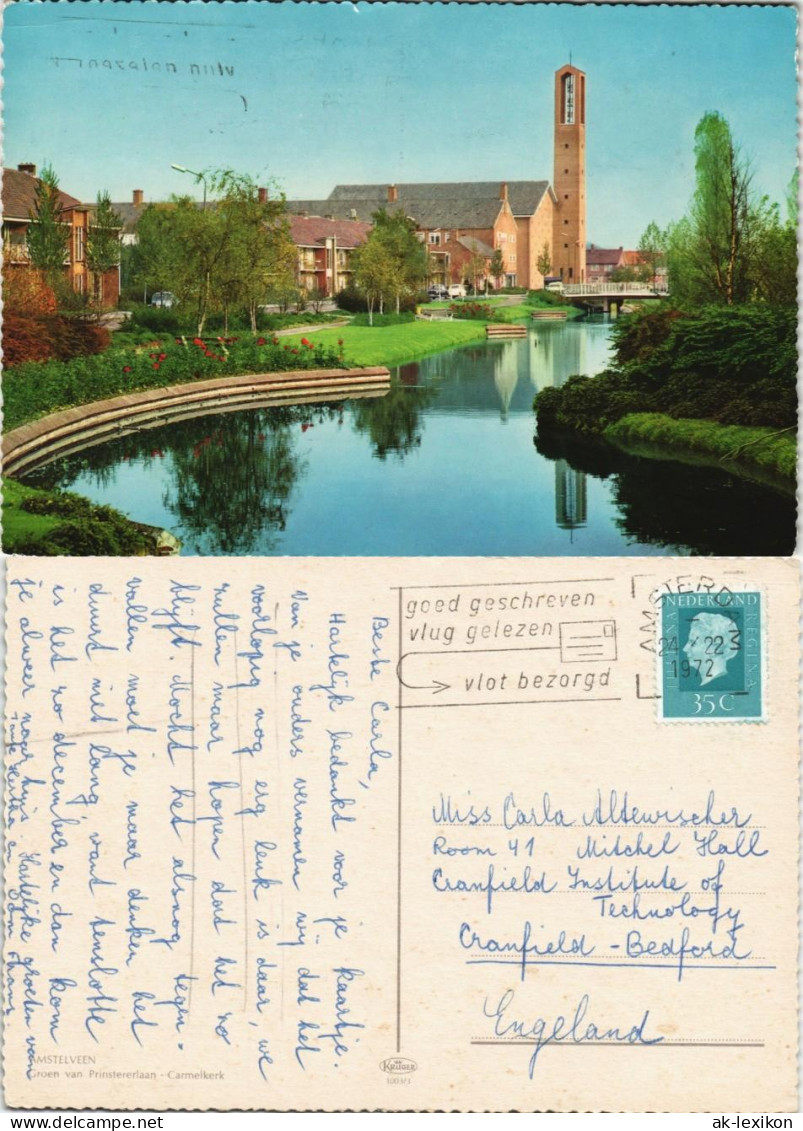 vlug gelezen
goed geschreven
vlug gelezen
vlot bezorgd
AMSTERD
24 X 22 3
1972
NEDERLAND
JULIANA REGINA
35C
Beste Carla,
Hartelijk bedankt voor je kaartje.
Van je ouders vernamen wij dat het
voorlopig nog erg leuk is daar, we
zullen maar hopen dat het zo
blijft. Mocht het alsnog tegen-
vallen moet je maar denken het
duurt niet lang, want tenslotte
is het zo december en dan kom
je alweer naar huis. Hartelijke groeten van
Tante en Oom
Miss Carla Altewischer
Room 41 Mitchel Hall
Cranfield Institute of
Technology
Cranfield - Bedford
Engeland
AMSTELVEEN
Groen van Prinstererlaan - Carmelkerk
KRUGER
www.ak-lexikon.de
ak-lexikon